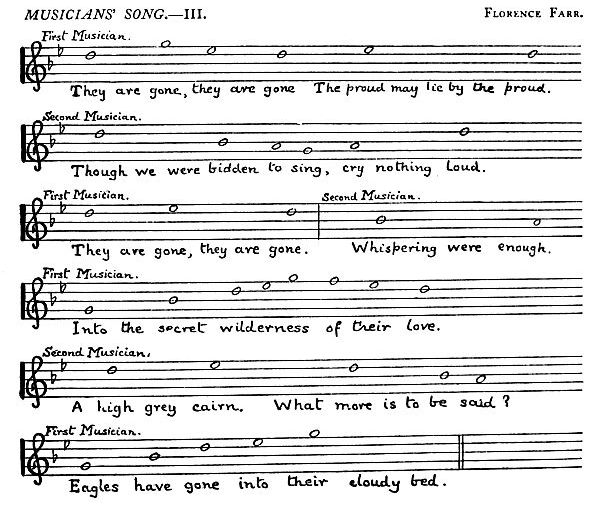 MUSICIANS' SONG.—III. FLORENCE FARR.
First Musician.
They are gone, they are gone The proud may lie by the proud.
Second Musician.
Though we were bidden to sing, cry nothing loud.
First Musician. Second Musician.
They are gone, they are gone. Whispering were enough.
First Musician.
Into the secret wilderness of their love.
Second Musician.
A high grey cairn. What more is to be said?
First Musician.
Eagles have gone into their cloudy bed.